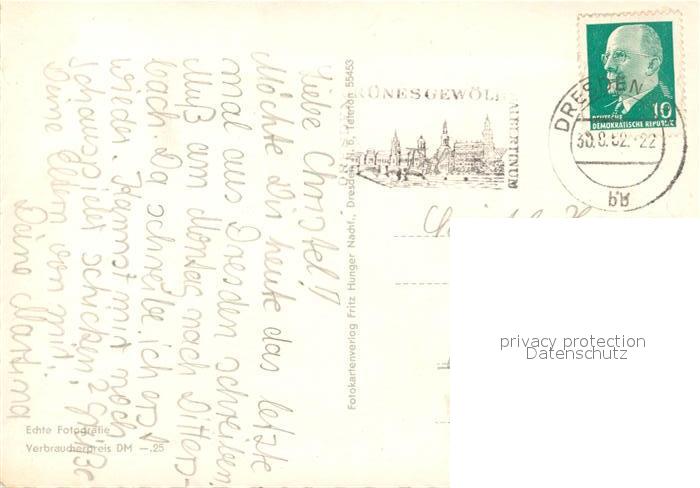 Liebe Christel!
Möchte Dir heute das letzte
mal aus Dresden schreiben.
Muß am Montag nach Ditters-
bach. Da schreibe ich erst
wieder. Kannst mir noch 2
Schauspieler schicken; Grüße
Deine Eltern von mir.
Deine Martina
Echte Fotografie
Verbraucherpreis DM —,25
Fotokartenverlag Fritz Hunger Nachf., Dresden N. 6, Telefon 55453
GRÜNES GEWÖLBE
ALBERTINUM
DRESDEN
30.8.62.-22
bg
10
DEUTSCHE
DEMOKRATISCHE REPUBLIK
privacy protection
Datenschutz